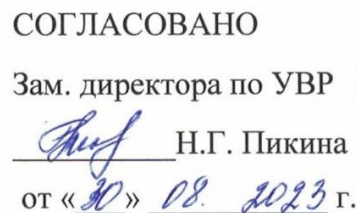 СОГЛАСОВАНО
Зам. директора по УВР
Н.Г. Пикина
от « 30 » 08. 2023 г.